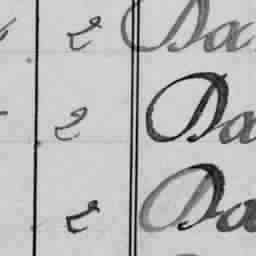 2 Da
2 Da
2 Da